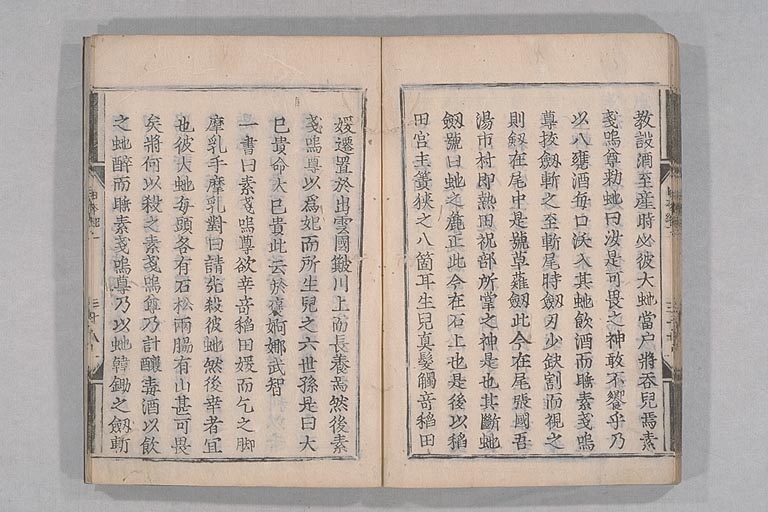 教設酒至産時必彼大虵當户將吞兒焉素
戔嗚尊勑虵曰汝是可畏之神敢不饗乎乃
以八甕酒每口沃入其虵飲酒而睡素戔嗚
尊拔劔斬之至斬尾時劔刃少缺割而視之
則劔在尾中是號草薙劔此今在尾張國吾
湯市村即熱田祝部所掌之神是也其斷虵
劔號曰虵之麁正此今在石上也是後以稻
田宮主簀狹之八箇耳生兒真髮觸竒稻田
媛遷置於出雲國簸川上而長養焉然後素
戔嗚尊以爲妃而所生兒之六世孫是曰大
己貴命大己貴此云於褒婀娜武智
一書曰素戔嗚尊欲幸竒稻田媛而乞之脚
摩乳手摩乳對曰請先殺彼虵然後幸者宜
也彼大虵每頭各有石松兩脇有山甚可畏
矣將何以殺之素戔嗚尊乃計釀毒酒以飲
之虵醉而睡素戔嗚尊乃以虵韓鋤之劔斬